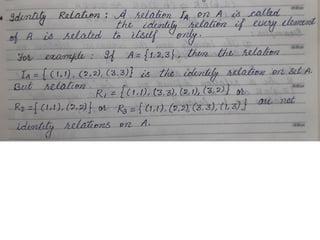 • Identity Relation : A relation I_A on A is called
the identity relation if every element
of A is related to itself only.
For example : If A = {1,2,3}, then the relation
I_A = { (1,1), (2,2), (3,3)} is the identity relation on set A.
But relation R₁ = {(1,1), (3,3), (2,1), (3,2)} or
R₂ = {(1,1), (2,2)} or R₃ = {(1,1), (2,2), (3,3), (1,3)} are not
identity relations on A.